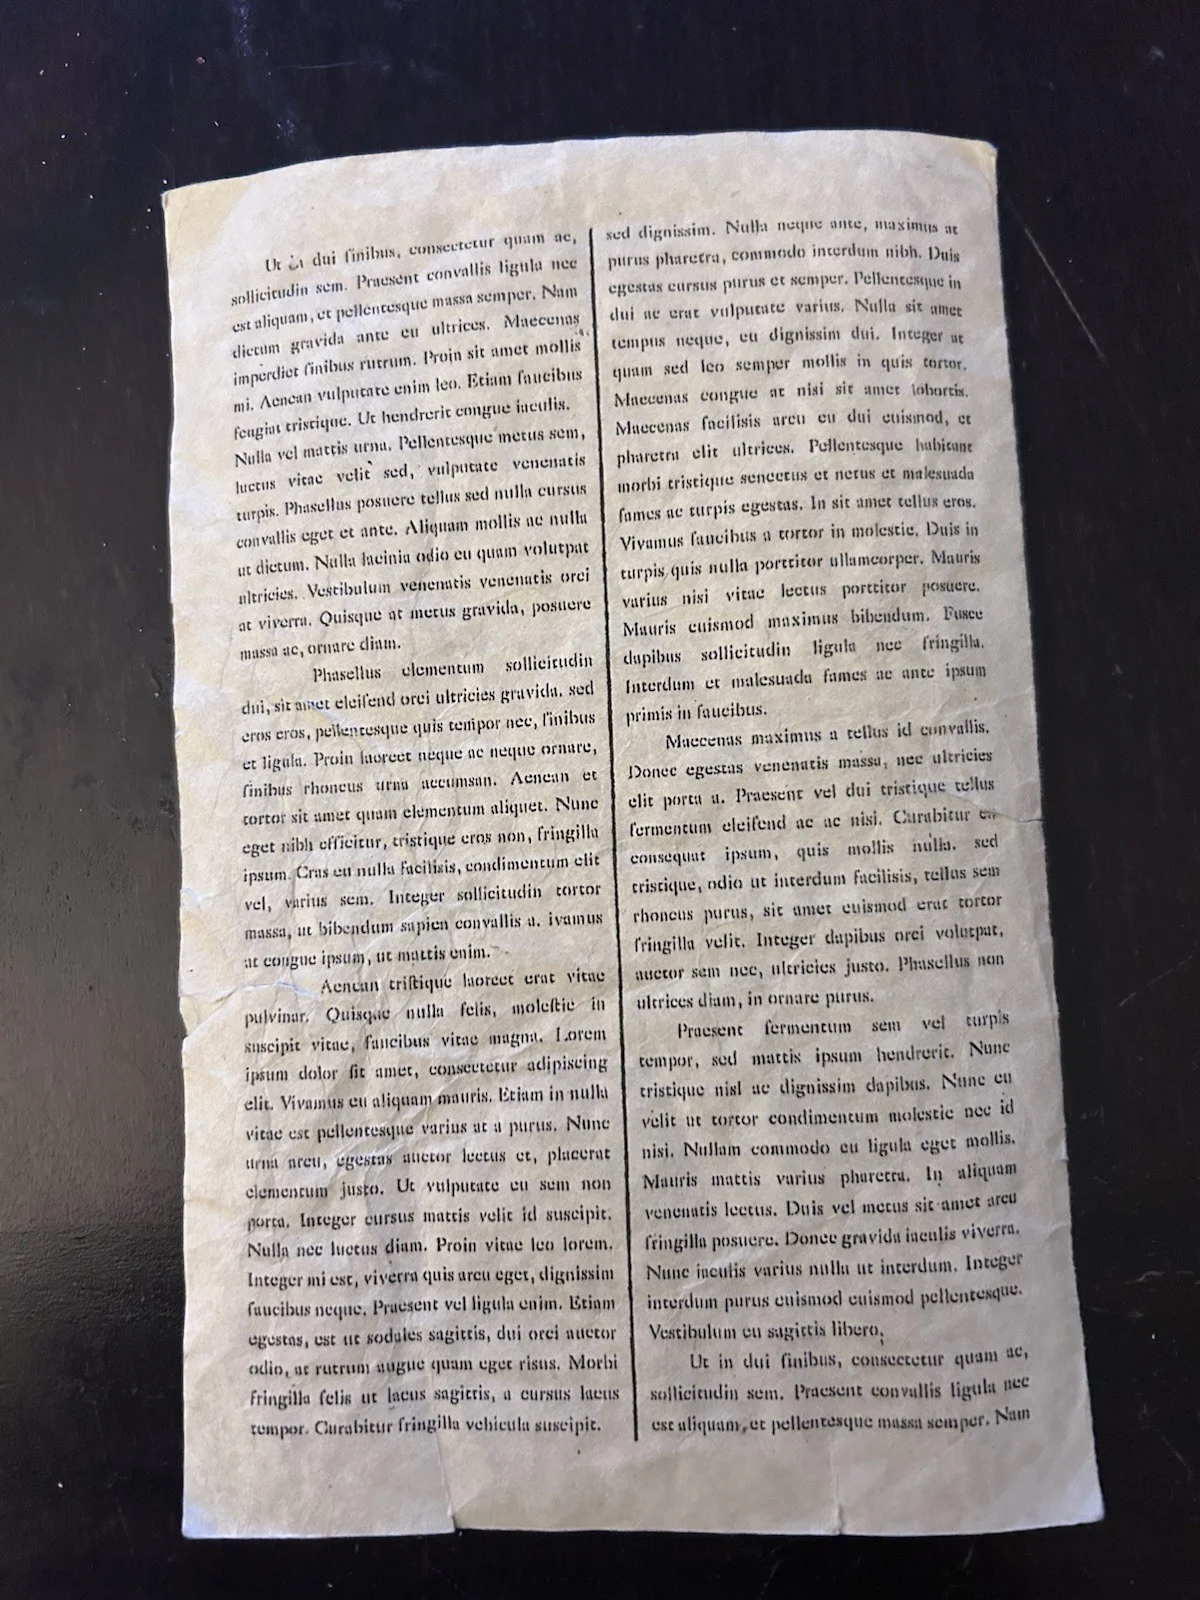 Ut in dui finibus, consectetur quam ac,
sollicitudin sem. Praesent convallis ligula nec
est aliquam, et pellentesque massa semper. Nam
dictum gravida ante eu ultrices. Maecenas
imperdiet finibus rutrum. Proin sit amet mollis
mi. Aenean vulputate enim leo. Etiam faucibus
feugiat tristique. Ut hendrerit congue iaculis.
Nulla vel mattis urna. Pellentesque metus sem,
luctus vitae velit sed, vulputate venenatis
turpis. Phasellus posuere tellus sed nulla cursus
convallis eget et ante. Aliquam mollis ac nulla
ut dictum. Nulla lacinia odio eu quam volutpat
ultricies. Vestibulum venenatis venenatis orci
at viverra. Quisque at metus gravida, posuere
massa ac, ornare diam.
Phasellus elementum sollicitudin
dui, sit amet eleifend orci ultricies gravida. sed
eros eros, pellentesque quis tempor nec, finibus
et ligula. Proin laoreet neque ac neque ornare,
finibus rhoncus urna accumsan. Aenean et
tortor sit amet quam elementum aliquet. Nunc
eget nibh efficitur, tristique eros non, fringilla
ipsum. Cras eu nulla facilisis, condimentum elit
vel, varius sem. Integer sollicitudin tortor
massa, ut bibendum sapien convallis a. ivamus
at congue ipsum, ut mattis enim.
Aenean triſtique laoreet erat vitae
pulvinar. Quisque nulla felis, moleſtie in
suscipit vitae, faucibus vitae magna. Lorem
ipsum dolor ſit amet, consectetur adipiscing
elit. Vivamus eu aliquam mauris. Etiam in nulla
vitae est pellentesque varius at a purus. Nunc
urna arcu, egestas auctor lectus et, placerat
elementum justo. Ut vulputate eu sem non
porta. Integer cursus mattis velit id suscipit.
Nulla nec luctus diam. Proin vitae leo lorem.
Integer mi est, viverra quis arcu eget, dignissim
faucibus neque. Praesent vel ligula enim. Etiam
egestas, est ut sodales sagittis, dui orci auctor
odio, at rutrum augue quam eget risus. Morbi
fringilla felis ut lacus sagittis, a cursus lacus
tempor. Curabitur fringilla vehicula suscipit.
sed dignissim. Nulla neque ante, maximus at
purus pharetra, commodo interdum nibh. Duis
egestas cursus purus et semper. Pellentesque in
dui ac erat vulputate varius. Nulla sit amet
tempus neque, eu dignissim dui. Integer at
quam sed leo semper mollis in quis tortor.
Maecenas congue at nisi sit amet lobortis.
Maecenas facilisis arcu eu dui euismod, et
pharetra elit ultrices. Pellentesque habitant
morbi tristique senectus et netus et malesuada
fames ac turpis egestas. In sit amet tellus eros.
Vivamus faucibus a tortor in molestie. Duis in
turpis quis nulla porttitor ullamcorper. Mauris
varius nisi vitae lectus porttitor posuere.
Mauris euismod maximus bibendum. Fusce
dapibus sollicitudin ligula nec fringilla.
Interdum et malesuada fames ac ante ipsum
primis in faucibus.
Maecenas maximus a tellus id convallis.
Donec egestas venenatis massa, nec ultricies
elit porta a. Praesent vel dui tristique tellus
fermentum eleifend ac ac nisi. Curabitur eu
consequat ipsum, quis mollis nulla. sed
tristique, odio ut interdum facilisis, tellus sem
rhoncus purus, sit amet euismod erat tortor
fringilla velit. Integer dapibus orci volutpat,
auctor sem nec, ultricies justo. Phasellus non
ultrices diam, in ornare purus.
Praesent fermentum sem vel turpis
tempor, sed mattis ipsum hendrerit. Nunc
tristique nisl ac dignissim dapibus. Nunc eu
velit ut tortor condimentum molestie nec id
nisi. Nullam commodo eu ligula eget mollis.
Mauris mattis varius pharetra. In aliquam
venenatis lectus. Duis vel metus sit amet arcu
fringilla posuere. Donec gravida iaculis viverra.
Nunc iaculis varius nulla ut interdum. Integer
interdum purus euismod euismod pellentesque.
Vestibulum eu sagittis libero,
Ut in dui finibus, consectetur quam ac,
sollicitudin sem. Praesent convallis ligula nec
est aliquam, et pellentesque massa semper. Nam